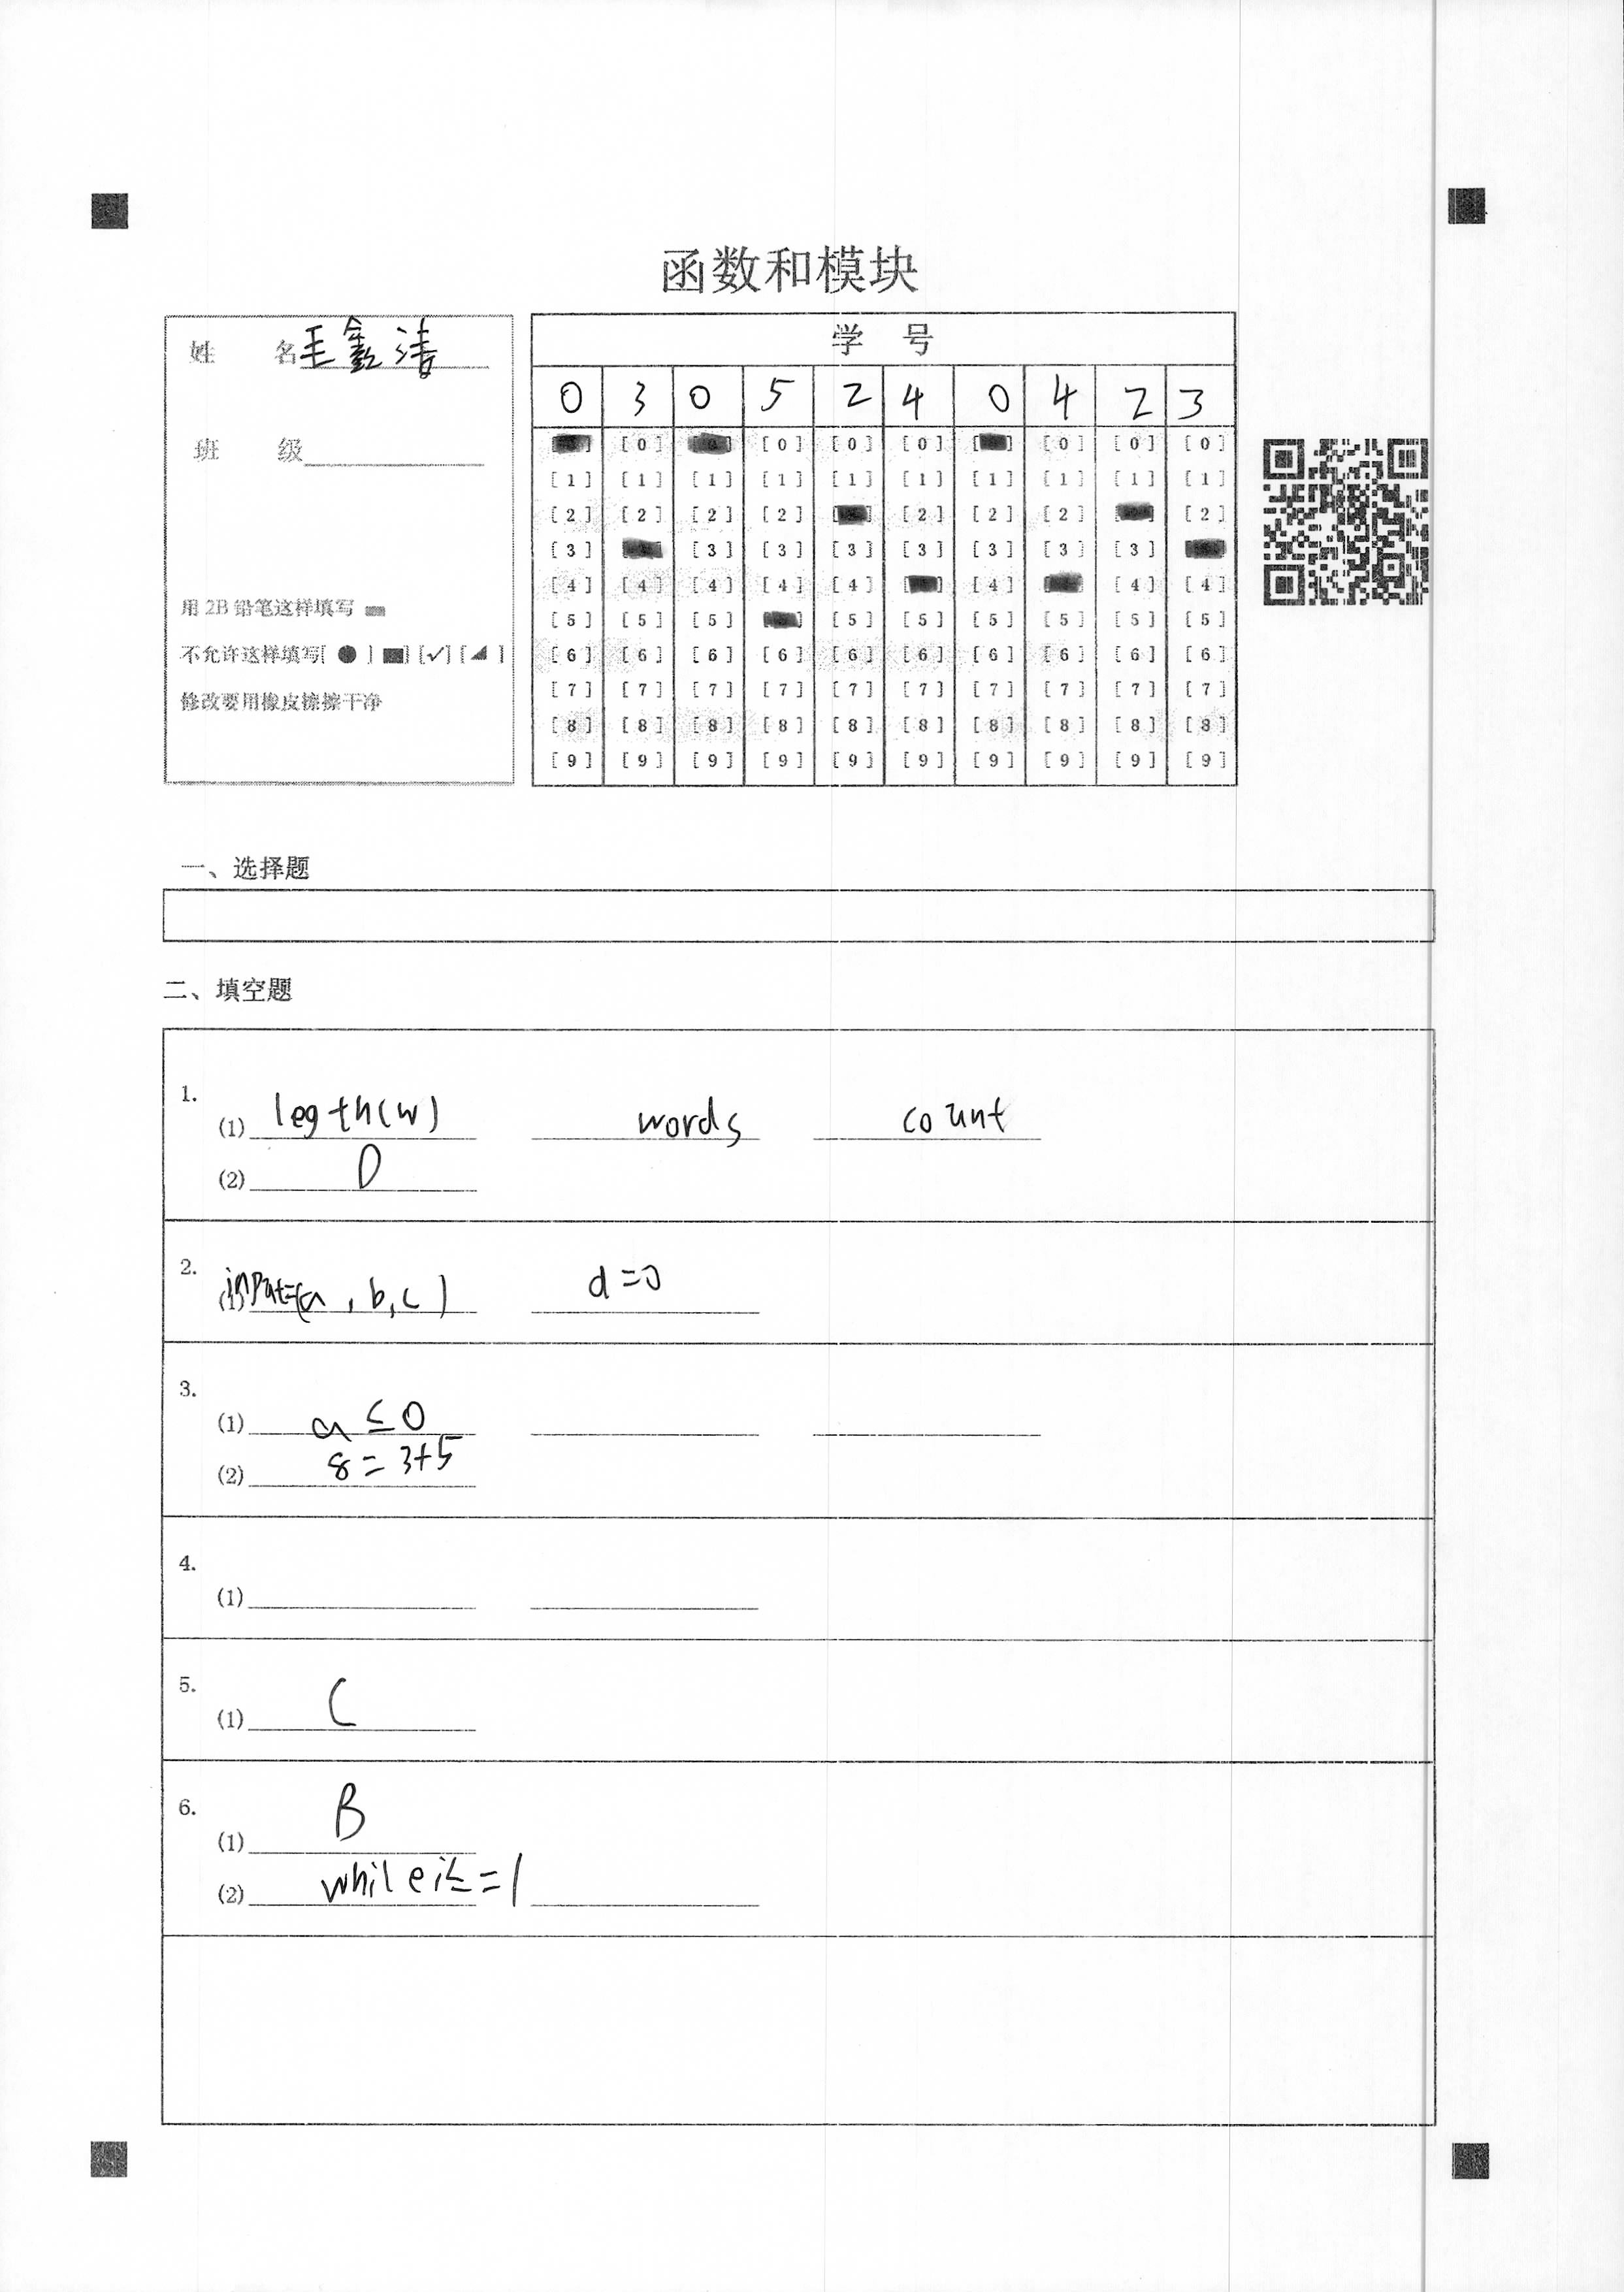 函数和模块
姓 名 毛鑫涛
班 级
用 2B 铅笔这样填写
不允许这样填写[ ● ] [■] [✓] [◢ ]
修改要用橡皮擦擦干净
学 号
0 3 0 5 2 4 0 4 2 3
[0] [0] [0] [0] [0] [0] [0]
[1] [1] [1] [1] [1] [1] [1] [1] [1] [1]
[2] [2] [2] [2] [2] [2] [2] [2]
[3] [3] [3] [3] [3] [3] [3] [3]
[4] [4] [4] [4] [4] [4] [4] [4]
[5] [5] [5] [5] [5] [5] [5] [5] [5]
[6] [6] [6] [6] [6] [6] [6] [6] [6] [6]
[7] [7] [7] [7] [7] [7] [7] [7] [7] [7]
[8] [8] [8] [8] [8] [8] [8] [8] [8] [8]
[9] [9] [9] [9] [9] [9] [9] [9] [9] [9]
一、选择题
二、填空题
1.
(1) legth(w) words count
(2) D
2.
(1) input=(a,b,c) d=0
3.
(1) a≤0
(2) 8=3+5
4.
(1)
5.
(1) C
6.
(1) B
(2) while i≤=1